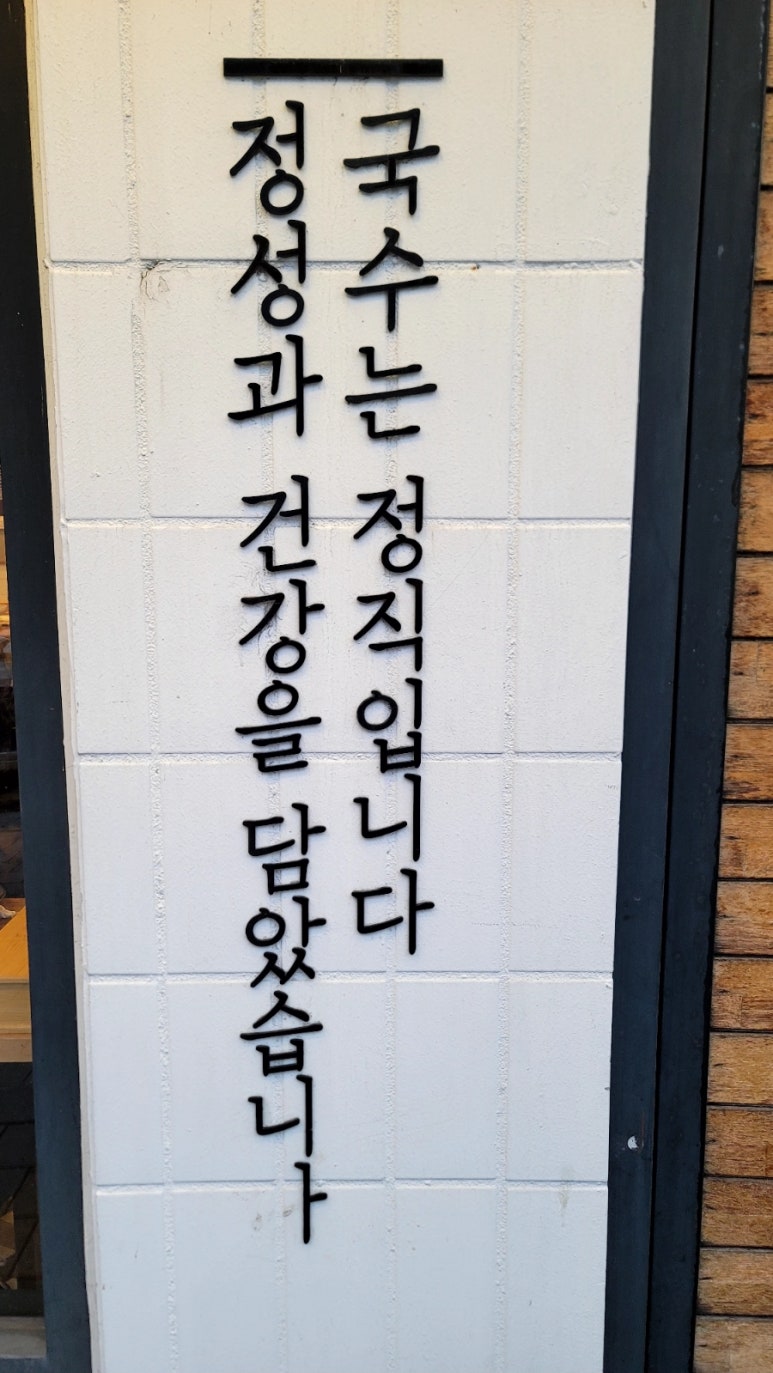 국수는 정직입니다
정성과 건강을 담았습니ㅏ